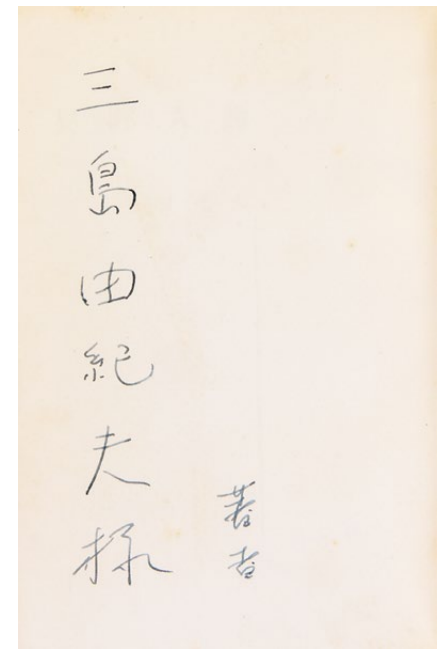 三島由紀夫様
著者